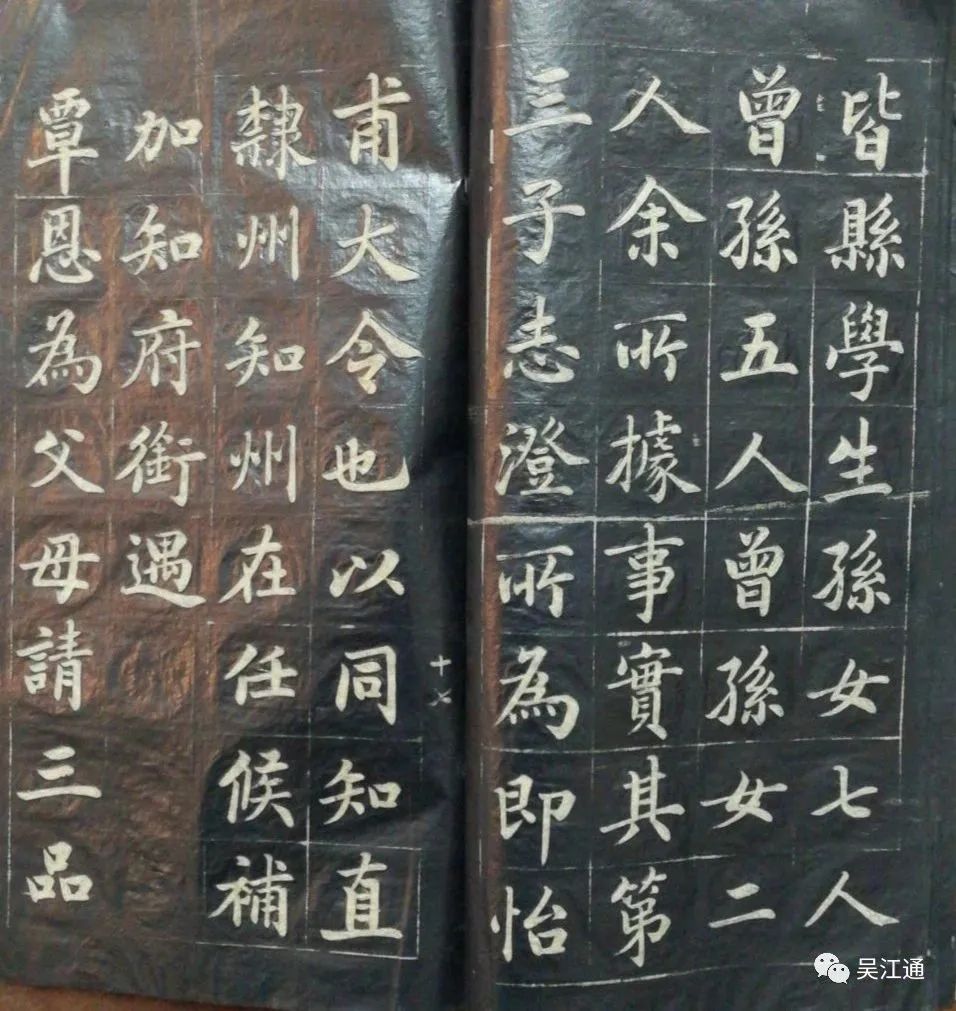 皆縣學生孫女七人
曾孫五人曾孫女二
人余所據事實其第
三子志澄所為即怡
甫大令也以同知直
隸州知州在任候補
加知府銜遇
覃恩為父母請三品
十乂
吴江通